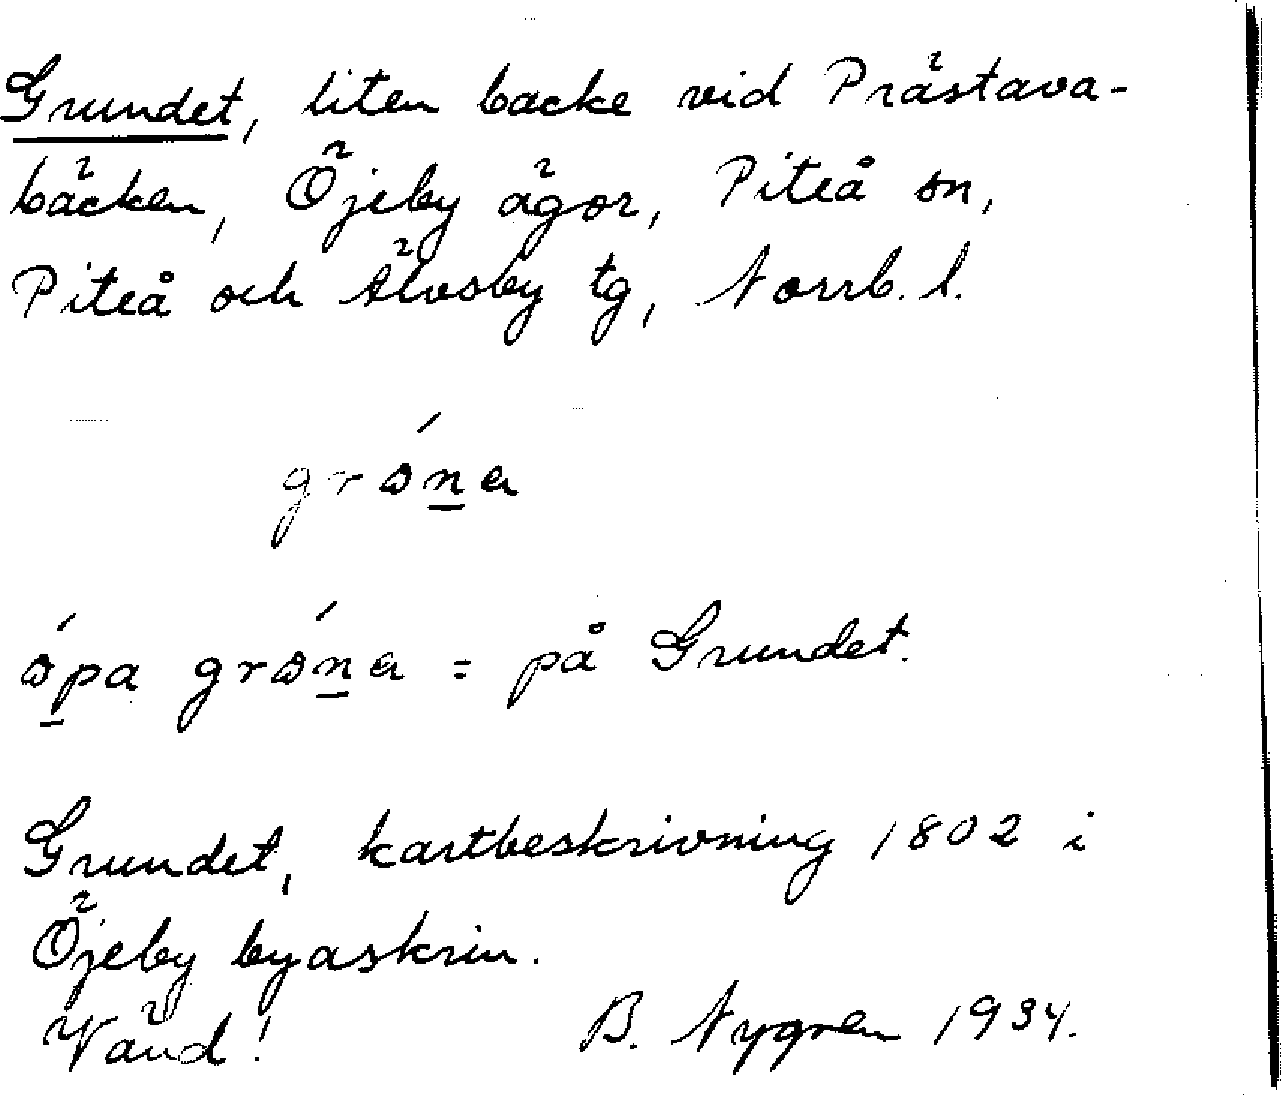 Grundet, liten backe vid Prästava-
bäcken, Öjeby ägor, Piteå sn,
Piteå och Älvsby tg, Norrb. l.
gróṉa
óp̱a gróṉa = på Grundet.
Grundet, kartbeskrivning 1802 i
Öjeby byaskrin.
Vänd! B. Nygren 1934.